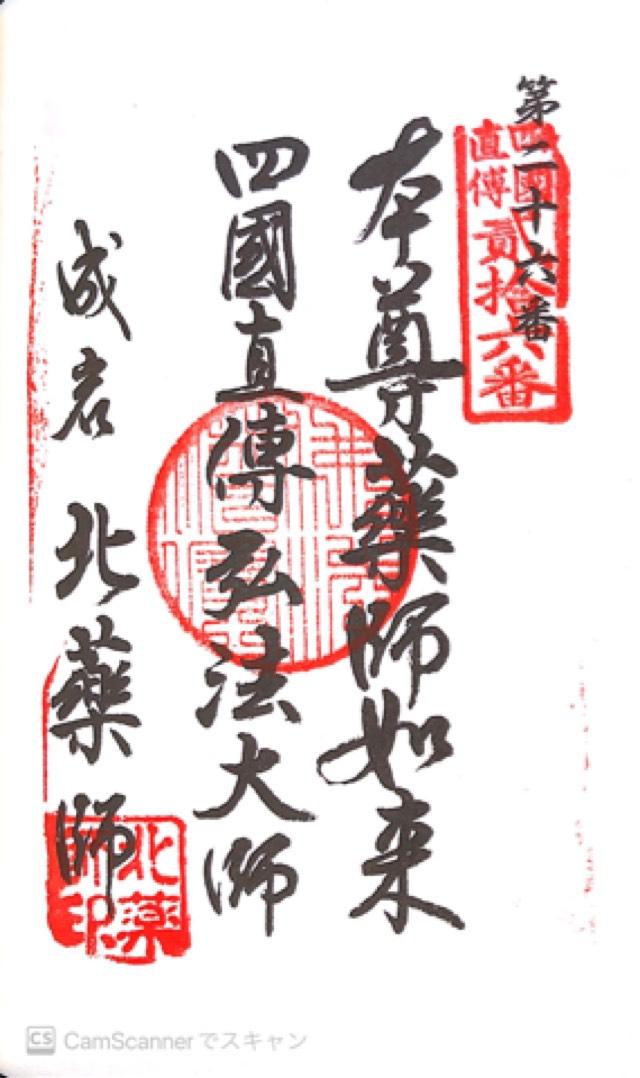 第二十六番
四國
直傳
貳拾六番
本尊薬師如来
四國直傳弘法大師
成岩 北薬師
北薬
師印
CS CamScannerでスキャン